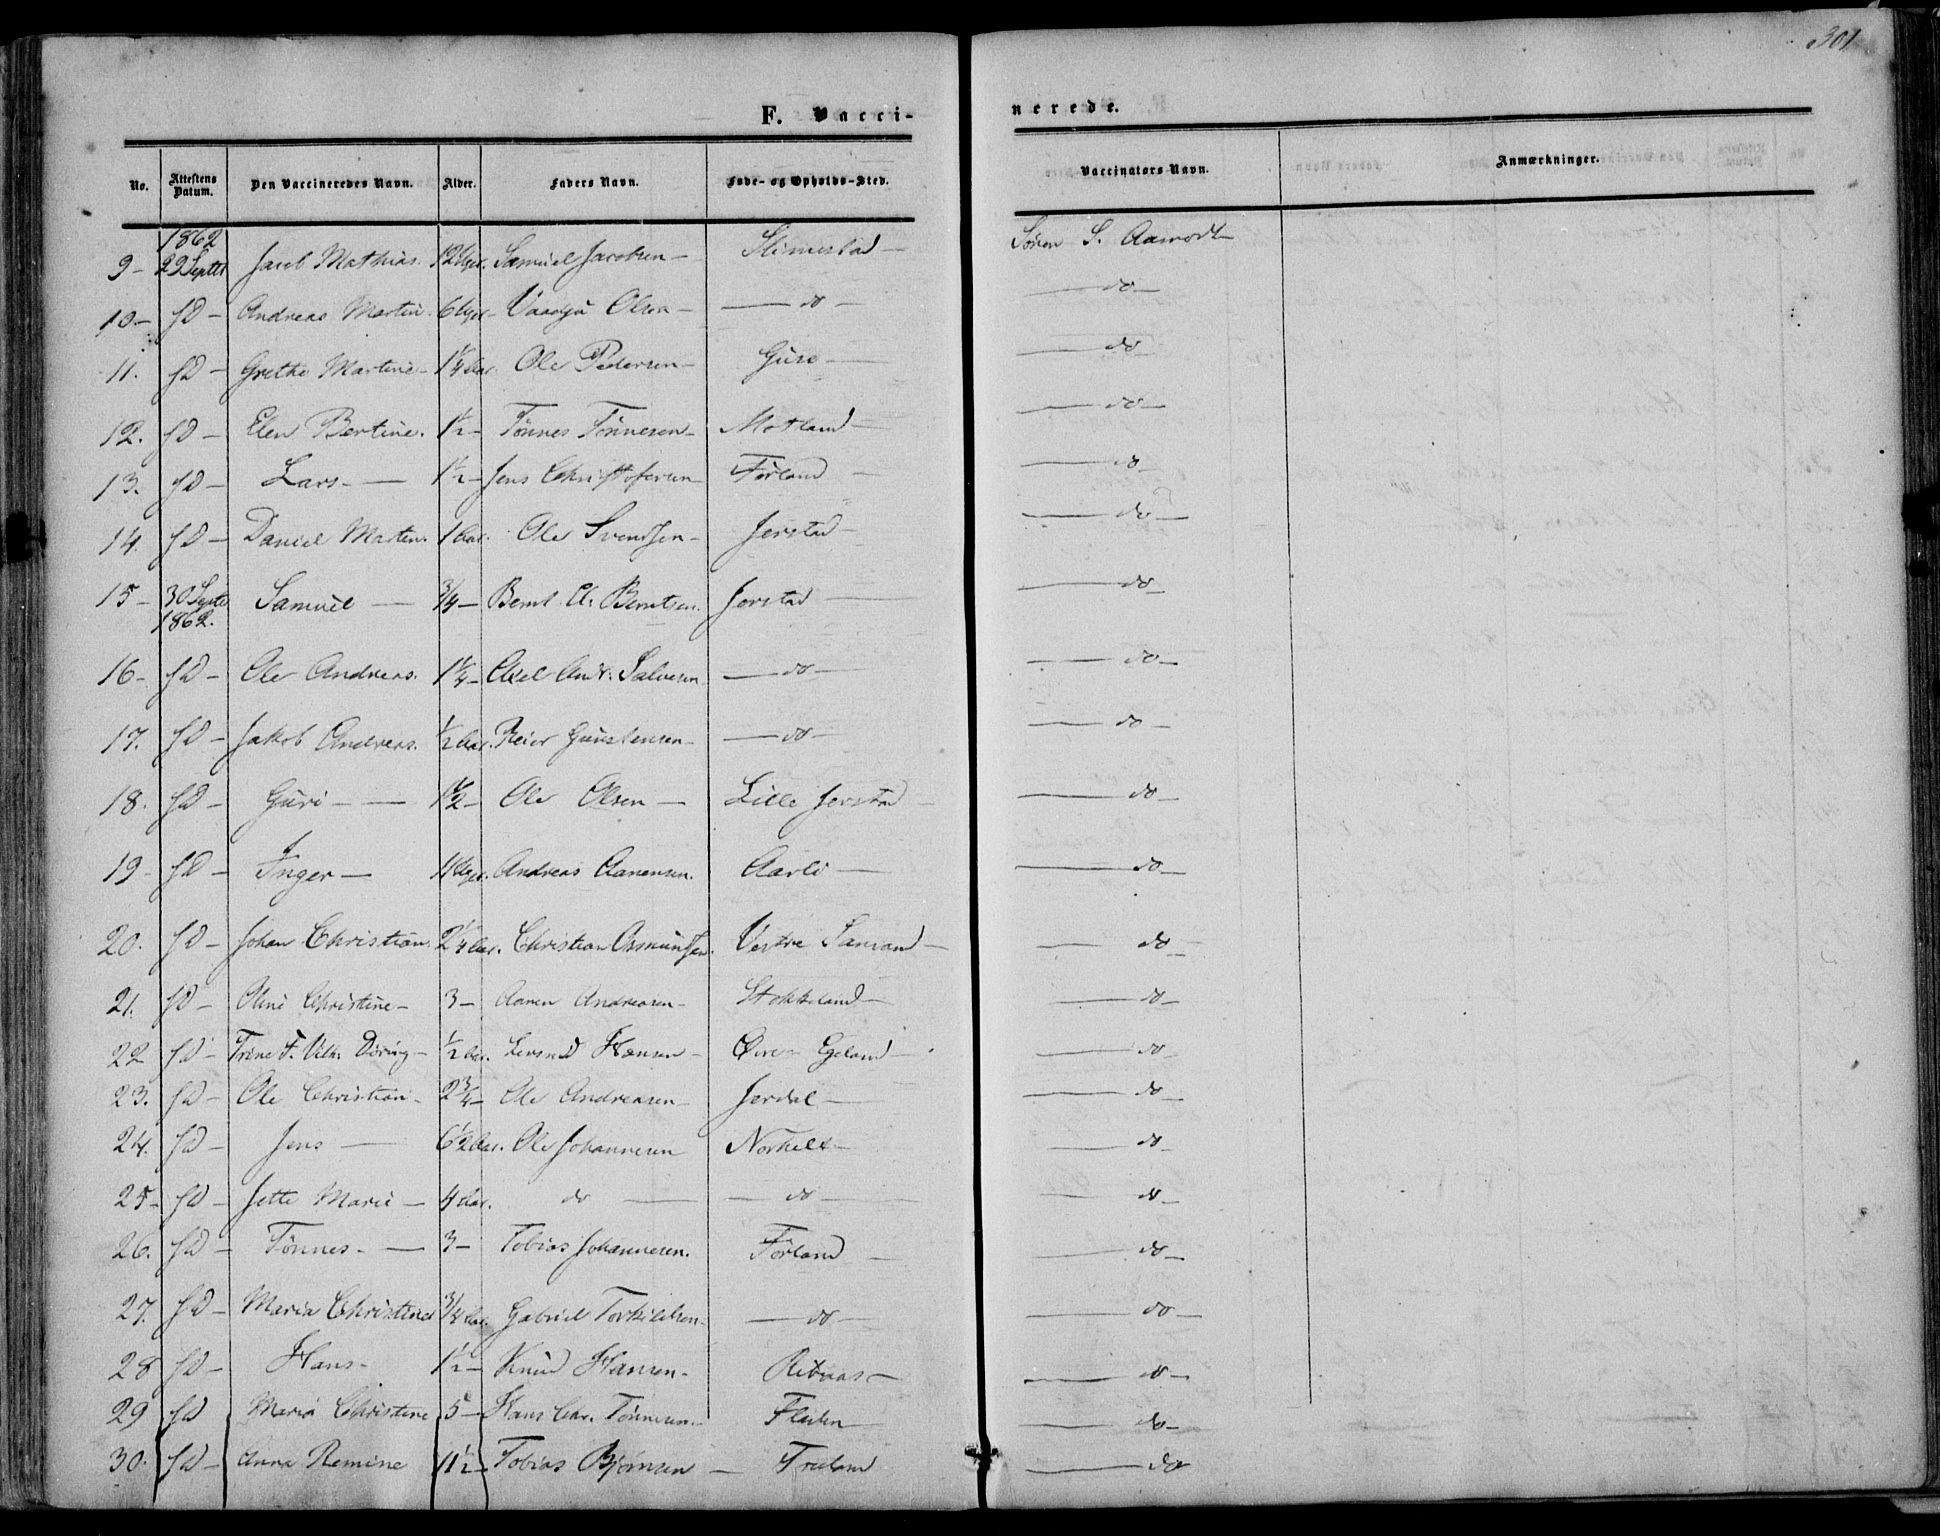 301
F. Vacci-
nerede.
No. Attestens Datum. Den Vaccineredes Navn. Alder. Faders Navn. Føde- og Opholds-Sted. Vaccinators Navn. Anmærkninger.
1862
9 - 29 Septbr Jacob Mathias. 12 Uger. Samuel Jacobsen - Slimestad - Sören S. Aamodt
10 - sD - Andreas Martin. 6 Uger - Vaardju Olsen - do - do -
11. sD - Grethe Martine - 1 1/4 Aar. Ole Pedersen - Guse - do
12. sD - Elen Bertine. 1 1/2 - Tönnes Tönnesen - Motland - do -
13. sD - Lars - 1 1/2 - Jens Christofersen - Förland - do -
14. sD - Daniel Martin. 1 Aar. Ole Svendsen - Jerstad - do -
15 - 30 Septbr 1862. Samuel - 3/4 - Bernt A. Berntsen. Jerstad - do -
16 - sD - Ole Andreas. 1 1/4 - Axel And. Salvesen - do - do -
17. sD - Jakob Andreas. 1/2 Aar. Reier Gunstensen - do - do -
18. sD - Guri - 1 1/2 - Ole Olsen - Lille Jerstad - do -
19 - sD - Inger - 11 Uger. Andreas Aanensen. Aarli - do -
20. sD - Johan Christian. 2 1/4 Aar. Christian Osmundsen. Vestre - do -
21. sD - Oline Christine - 3 - Aanen Andreasen - Stokkeland - do -
22 sD - Trine F. Vilh. Döring - 1/2 Aar. Hansen - Övre Egeland - do -
23. sD - Ole Christian - 2 3/4 - Ole Andreasen - Jerdal - do -
24. sD - Jens - 6 1/2 Aar. Ole Johannesen - do -
25 - sD - Jette Marie - 4 Aar. do - do - do -
26. sD - Tönnes - 3 - Tobias Johannesen. Förland - do -
27. sD - Maria Christine 3/4 Aar. Gabriel Torkildsen - do - do -
28 sD - Hans - 1 1/2 - Knud Hansen - do -
29 sD Maria Christine 5 - Hans Chr. Tönnesen - do -
30. sD - Anna Remine 11 1/2 - Tobias Björnsen - do